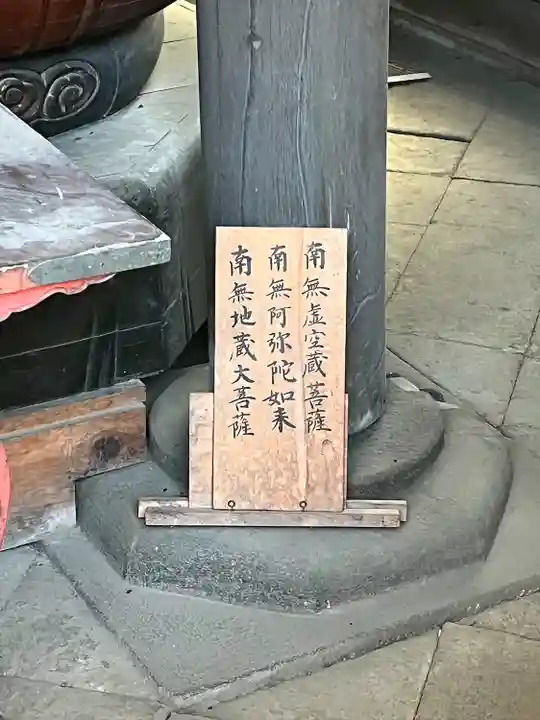 南無虚空蔵菩薩
南無阿弥陀如来
南無地蔵大菩薩